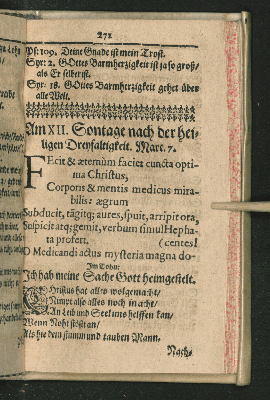 271
Ps: 109. Deine Gnade ist mein Trost.
Syr: 2. GOttes Barmhertzigkeit ist ja so groß/
als Er selber ist.
Syr. 18. GOttes Barmhertzigkeit gehet über
alle Welt.
Am XII. Sontage nach der hei-
ligen Dreyfaltigkeit. Marc. 7.
FEcit & æternùm faciet cuncta opti-
ma Christus,
Corporis & mentis medicus mira-
bilis: ægrum
Subducit, tāgitq; aures, spuit, arripit ora,
Suspicit atq; gemit, verbum simul Hepha-
ta profert. (centes!
O Medicandi actus mysteria magna do-
Im Tohn:
Ich hab meine Sache Gott heimgestelt.
CHristus hat alles wolgemacht/
Nimpt also alles noch in acht/
An Leib und Seel uns helffen kan/
Wenn Noht stöst an/
Als hie dem stumm und tauben Mann.
Nach-